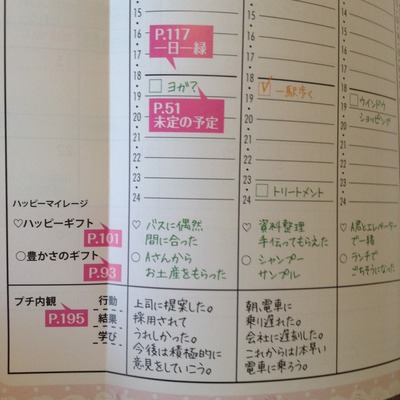 15
16
17
18
19
20
21
22
23
24
P.117
一日一縁
□ヨガ?
P.51
未定の予定
15
16
17
18
19
20
21
22
23
24
☑一駅歩く
□トリートメント
14
15
16
17
18
19
20
21
22
23
24
□ウインドウ
ショッピング
ハッピーマイレージ
♡ハッピーギフト
P.101
○豊かさのギフト
P.93
♡バスに偶然
間に合った
○Aさんから
お土産をもらった
♡資料整理
手伝ってもらえた
○シャンプー
サンプル
♡A君とエレベーター
で一緒
○ランチで
ごちそうになった
プチ内観
P.195
行動
結果
学び
上司に提案した。
採用されて
うれしかった。
今後は積極的に
意見をしていこう。
朝、電車に
乗り遅れた。
会社に遅刻した。
これからは1本早い
電車に乗ろう。